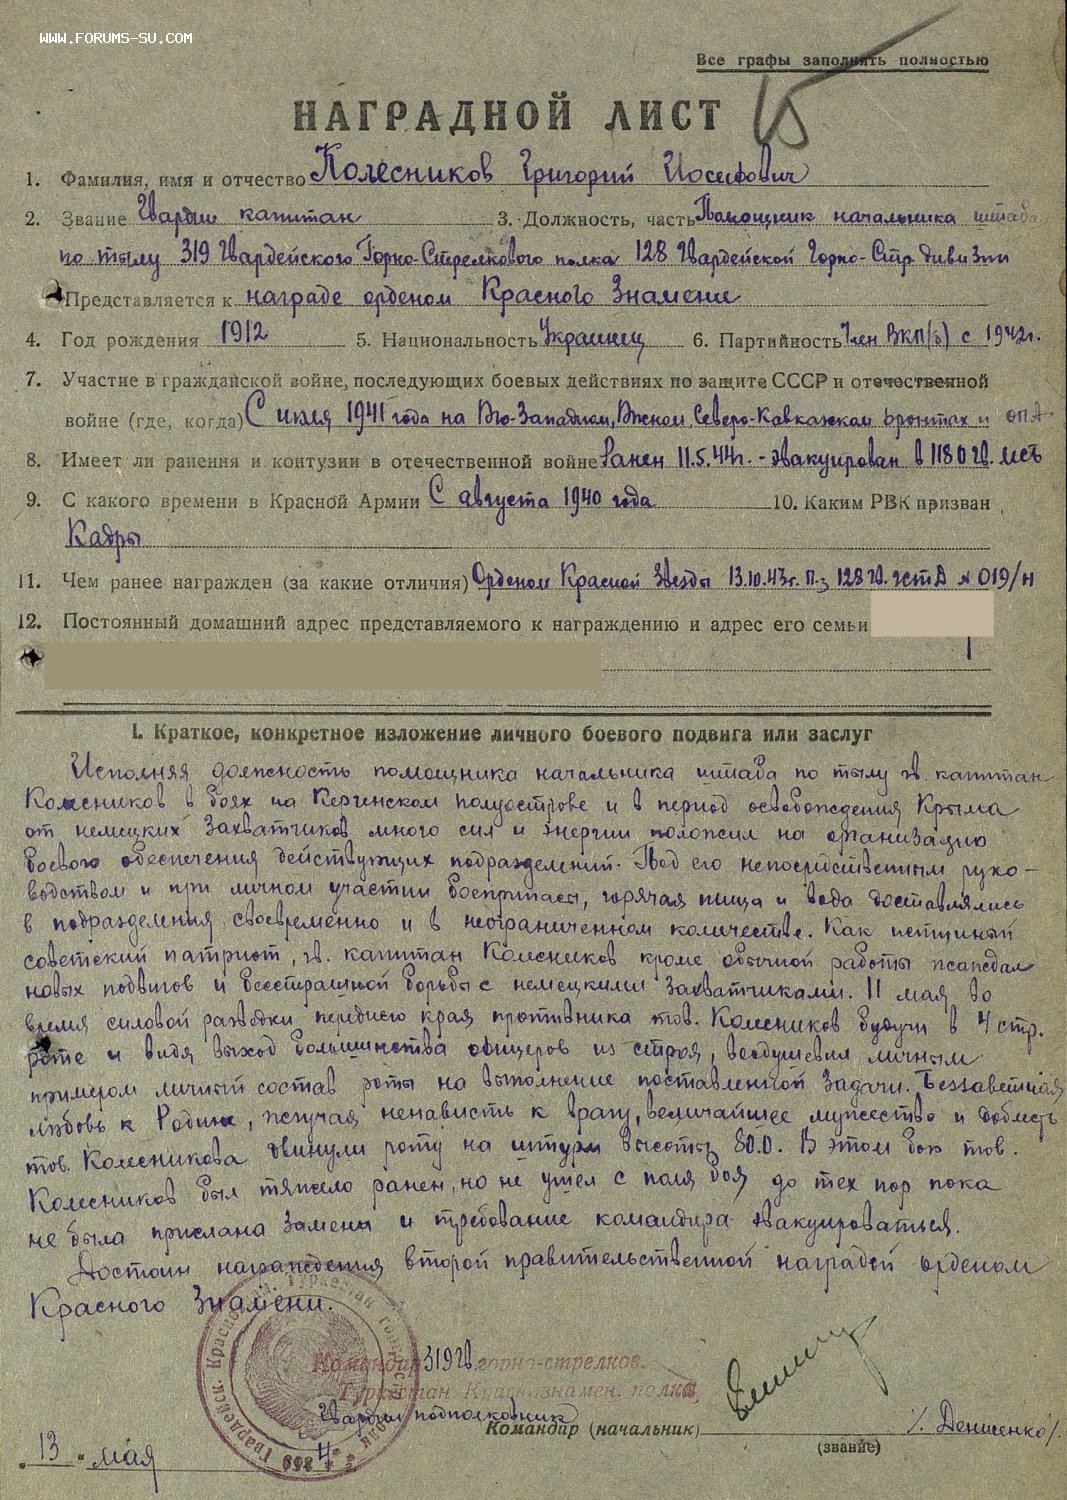 WWW.FORUMS-SU.COM
Все графы заполнять полностью
НАГРАДНОЙ ЛИСТ
15
1. Фамилия, имя и отчество Колесников Григорий Иосифович
2. Звание Гвардии капитан 3. Должность, часть Помощник начальника штаба
по тылу 319 Гвардейского Горно-Стрелкового полка 128 Гвардейской Горно-Стр дивизии
Представляется к награде орденом Красного Знамени
4. Год рождения 1912 5. Национальность Украинец 6. Партийность Член ВКП(б) с 1942г.
7. Участие в гражданской войне, последующих боевых действиях по защите СССР и отечественной
войне (где, когда) С июля 1941 года на Юго-Западном, Южном, Северо-Кавказском фронтах и ОПА
8. Имеет ли ранения и контузии в отечественной войне Ранен 11.5.44г. - эвакуирован в 1180 гв.
9. С какого времени в Красной Армии С августа 1940 года 10. Каким РВК призван
Кадры
11. Чем ранее награжден (за какие отличия) Орденом Красной Звезды 13.10.43г. 128 гв. № 019/н
12. Постоянный домашний адрес представляемого к награждению и адрес его семьи
I. Краткое, конкретное изложение личного боевого подвига или заслуг
Исполняя должность помощника начальника штаба по тылу гв. капитан
Колесников в боях на Керченском полуострове и в период освобождения Крыма
от немецких захватчиков много сил и энергии положил на организацию
боевого обеспечения действующих подразделений. Под его непосредственным руко-
водством и при личном участии боеприпасы, горячая пища и вода доставлялись
в подразделения своевременно и в неограниченном количестве. Как истиный
советский патриот, гв. капитан Колесников кроме обычной работы жаждал
новых подвигов и бесстрашной борьбы с немецкими захватчиками. 11 мая во
время силовой разведки переднего края противника тов. Колесников будучи в 4 стр.
роте и видя выход большинства офицеров из строя, воодушевил личным
примером личный состав роты на выполнение поставленной задачи. Беззаветная
любовь к Родине, жгучая ненависть к врагу, величайшее мужество и доблесть
тов. Колесникова двинули роту на штурм высоты 80.0. В этом бою тов.
Колесников был тяжело ранен, но не ушел с поля боя до тех пор пока
не была прислана замена и требование командира эвакуироваться.
Достоин награждения второй правительственной наградой орденом
Красного Знамени.
Командир 319 гв горно-стрелков.
Туркестан Краснознамен. полка
Гвардии подполковник
Командир (начальник) /Денисенко/.
(звание)
"13" мая 4